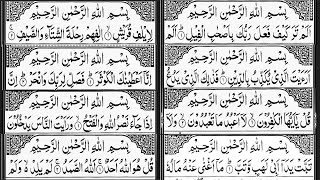 بِسْمِ اللّٰهِ الرَّحْمٰنِ الرَّحِيْمِ
اَلَمْ تَرَ كَيْفَ فَعَلَ رَبُّكَ بِاَصْحٰبِ الْفِيْلِ ۝ اَلَمْ
بِسْمِ اللّٰهِ الرَّحْمٰنِ الرَّحِيْمِ
لِاِيْلٰفِ قُرَيْشٍ ۝ اٖلٰفِهِمْ رِحْلَةَ الشِّتَآءِ وَالصَّيْفِ ۝
بِسْمِ اللّٰهِ الرَّحْمٰنِ الرَّحِيْمِ
اَرَءَيْتَ الَّذِيْ يُكَذِّبُ بِالدِّيْنِ ۝ فَذٰلِكَ الَّذِيْ يَدُعُّ
بِسْمِ اللّٰهِ الرَّحْمٰنِ الرَّحِيْمِ
اِنَّآ اَعْطَيْنٰكَ الْكَوْثَرَ ۝ فَصَلِّ لِرَبِّكَ وَانْحَرْ ۝ اِنَّ
بِسْمِ اللّٰهِ الرَّحْمٰنِ الرَّحِيْمِ
قُلْ يٰٓاَيُّهَا الْكٰفِرُوْنَ ۝ لَآ اَعْبُدُ مَا تَعْبُدُوْنَ ۝ وَلَآ
بِسْمِ اللّٰهِ الرَّحْمٰنِ الرَّحِيْمِ
اِذَا جَآءَ نَصْرُ اللّٰهِ وَالْفَتْحُ ۝ وَرَاَيْتَ النَّاسَ يَدْخُلُوْنَ
بِسْمِ اللّٰهِ الرَّحْمٰنِ الرَّحِيْمِ
تَبَّتْ يَدَآ اَبِيْ لَهَبٍ وَّتَبَّ ۝ مَآ اَغْنٰى عَنْهُ مَالُهٗ
بِسْمِ اللّٰهِ الرَّحْمٰنِ الرَّحِيْمِ
قُلْ هُوَ اللّٰهُ اَحَدٌ ۝ اَللّٰهُ الصَّمَدُ ۝ لَمْ يَلِدْ وَلَمْ